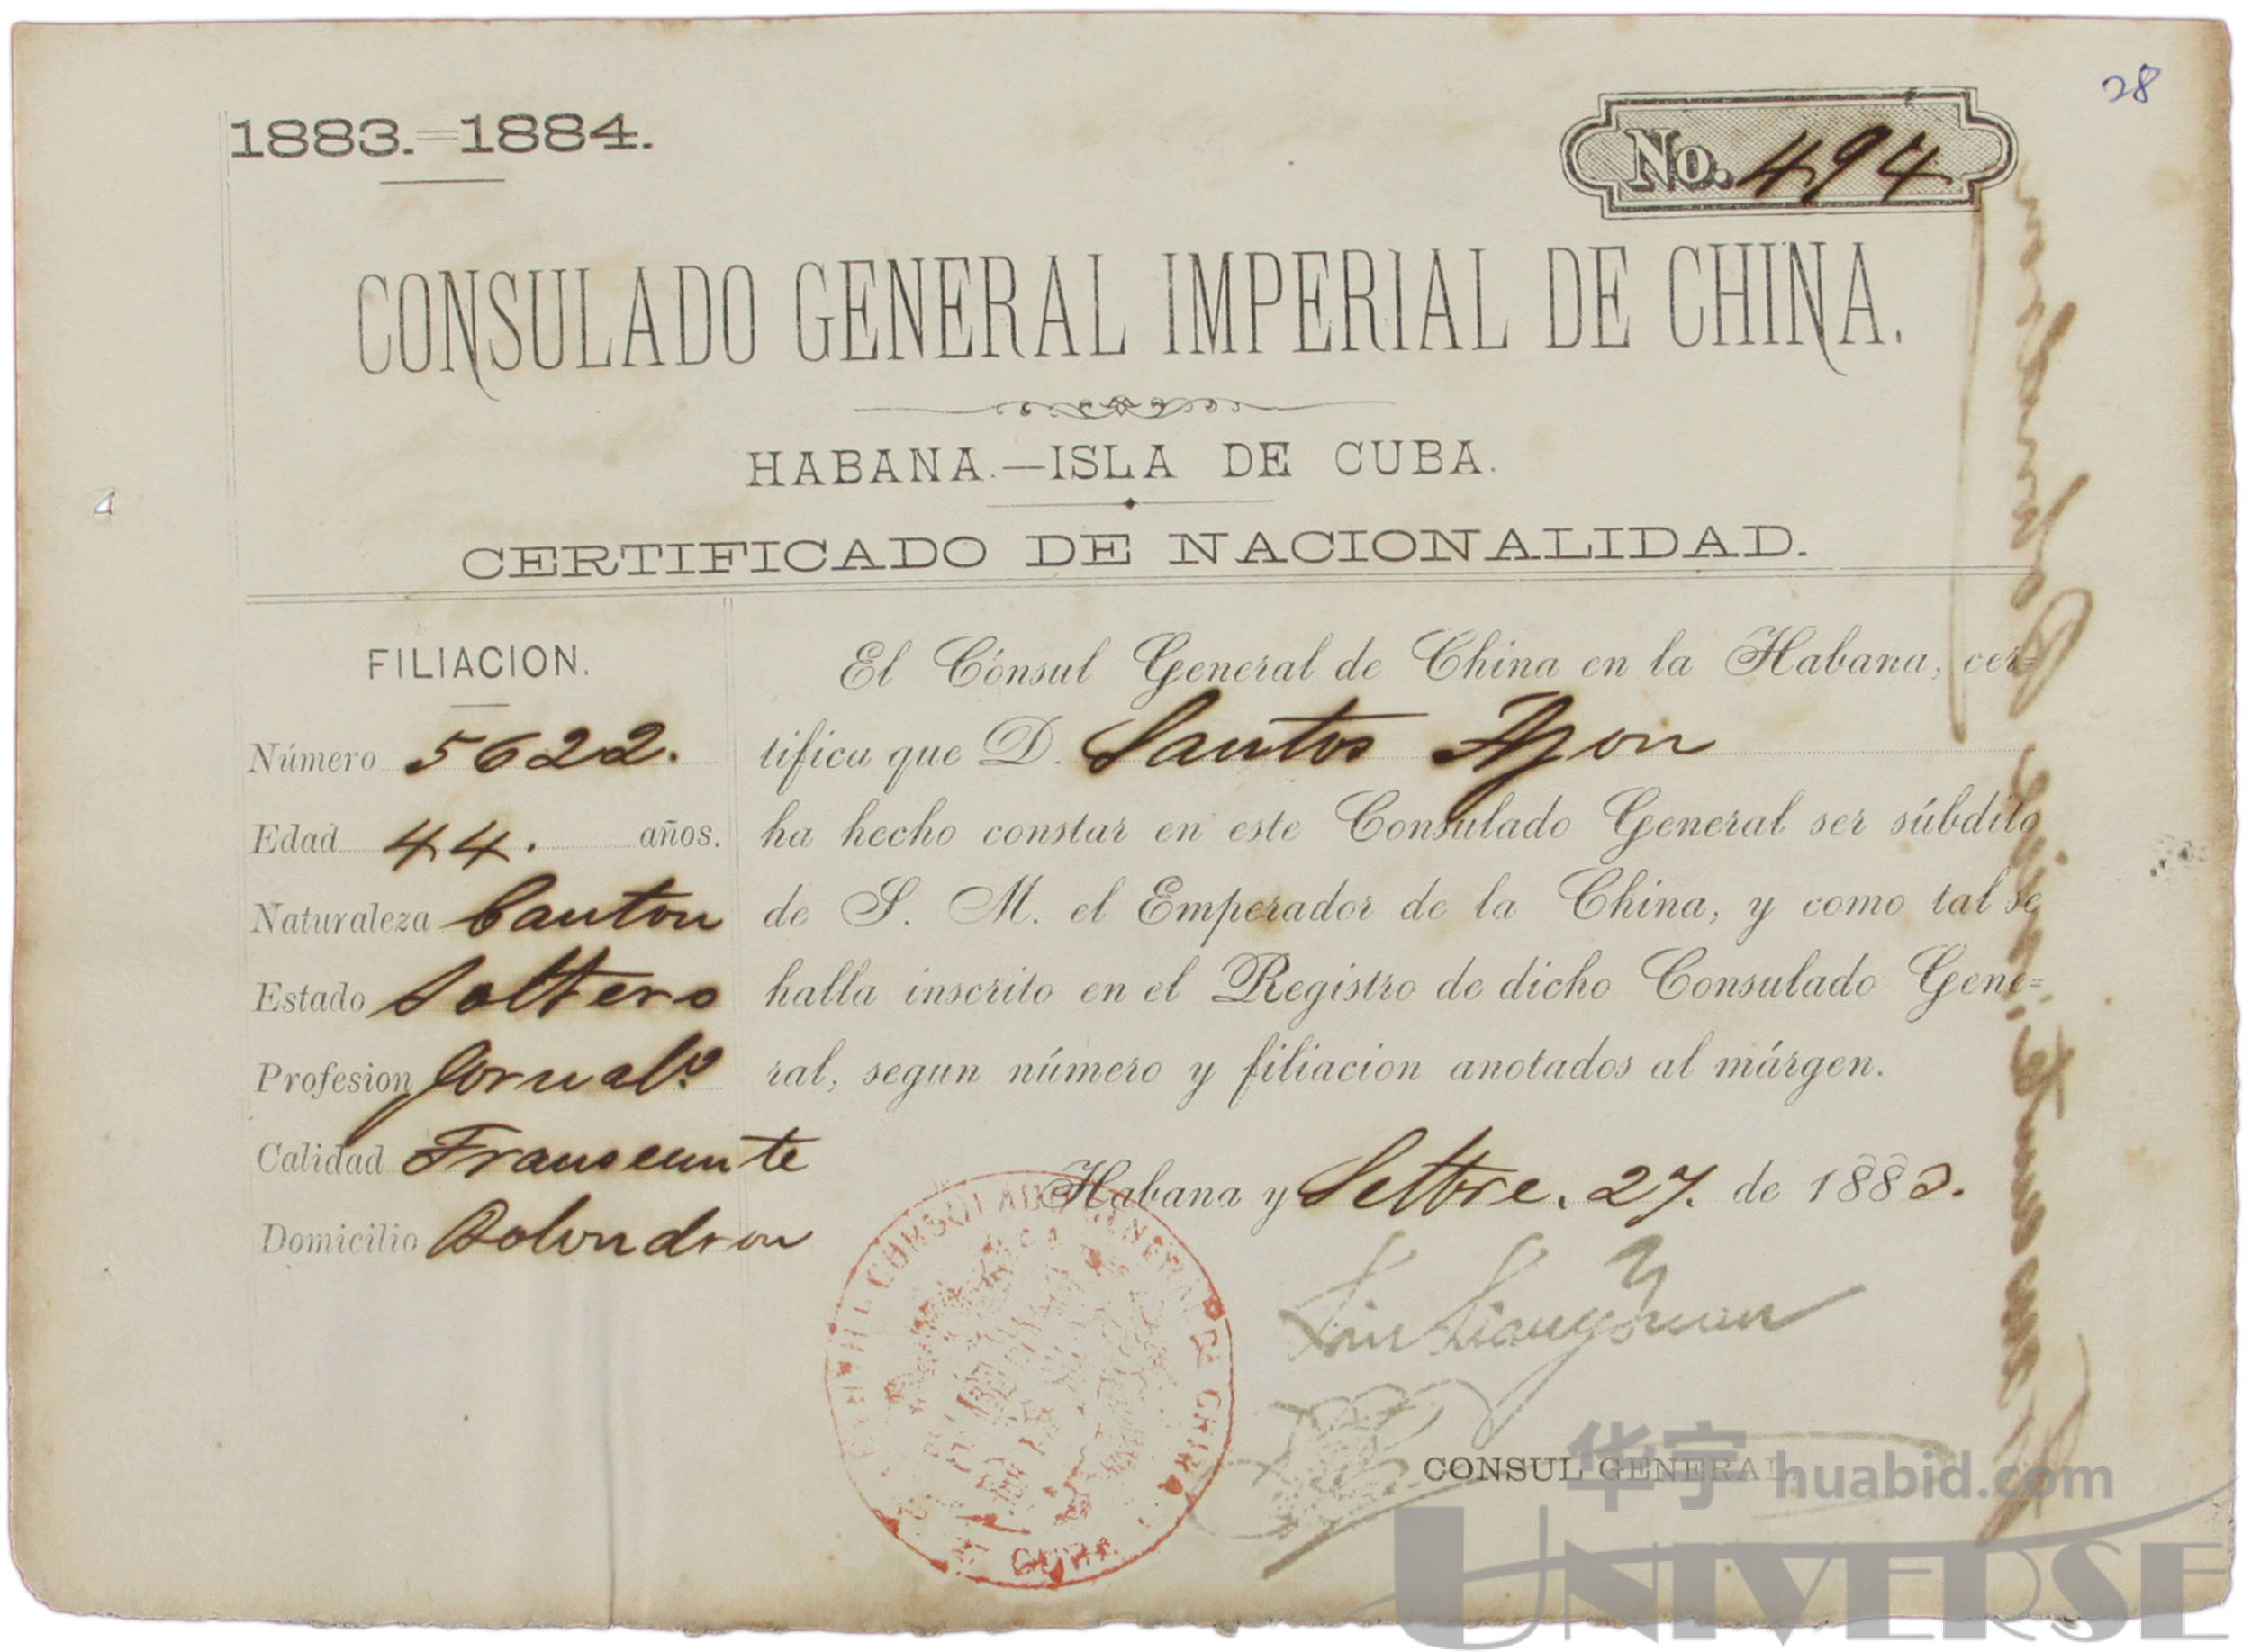 28
1883.=1884.
No. 494
CONSULADO GENERAL IMPERIAL DE CHINA.
HABANA.—ISLA DE CUBA.
CERTIFICADO DE NACIONALIDAD.
FILIACION.
Número 5622.
Edad 44. años.
Naturaleza Canton
Estado Soltero
Profesion Jornalº
Calidad Transeunte
Domicilio Bolondron
El Cónsul General de China en la Habana, cer=
tifica que D. Santos Ajon
ha hecho constar en este Consulado General ser súbdito
de S. M. el Emperador de la China, y como tal se
halla inscrito en el Registro de dicho Consulado Gene=
ral, segun número y filiacion anotados al márgen.
Habana y Settbre. 27. de 1883.
Liu Liang Yuan
CONSUL GENERAL.
CONSULADO GENERAL DE CHINA
CUBA
华宇 huabid.com
UNIVERSE